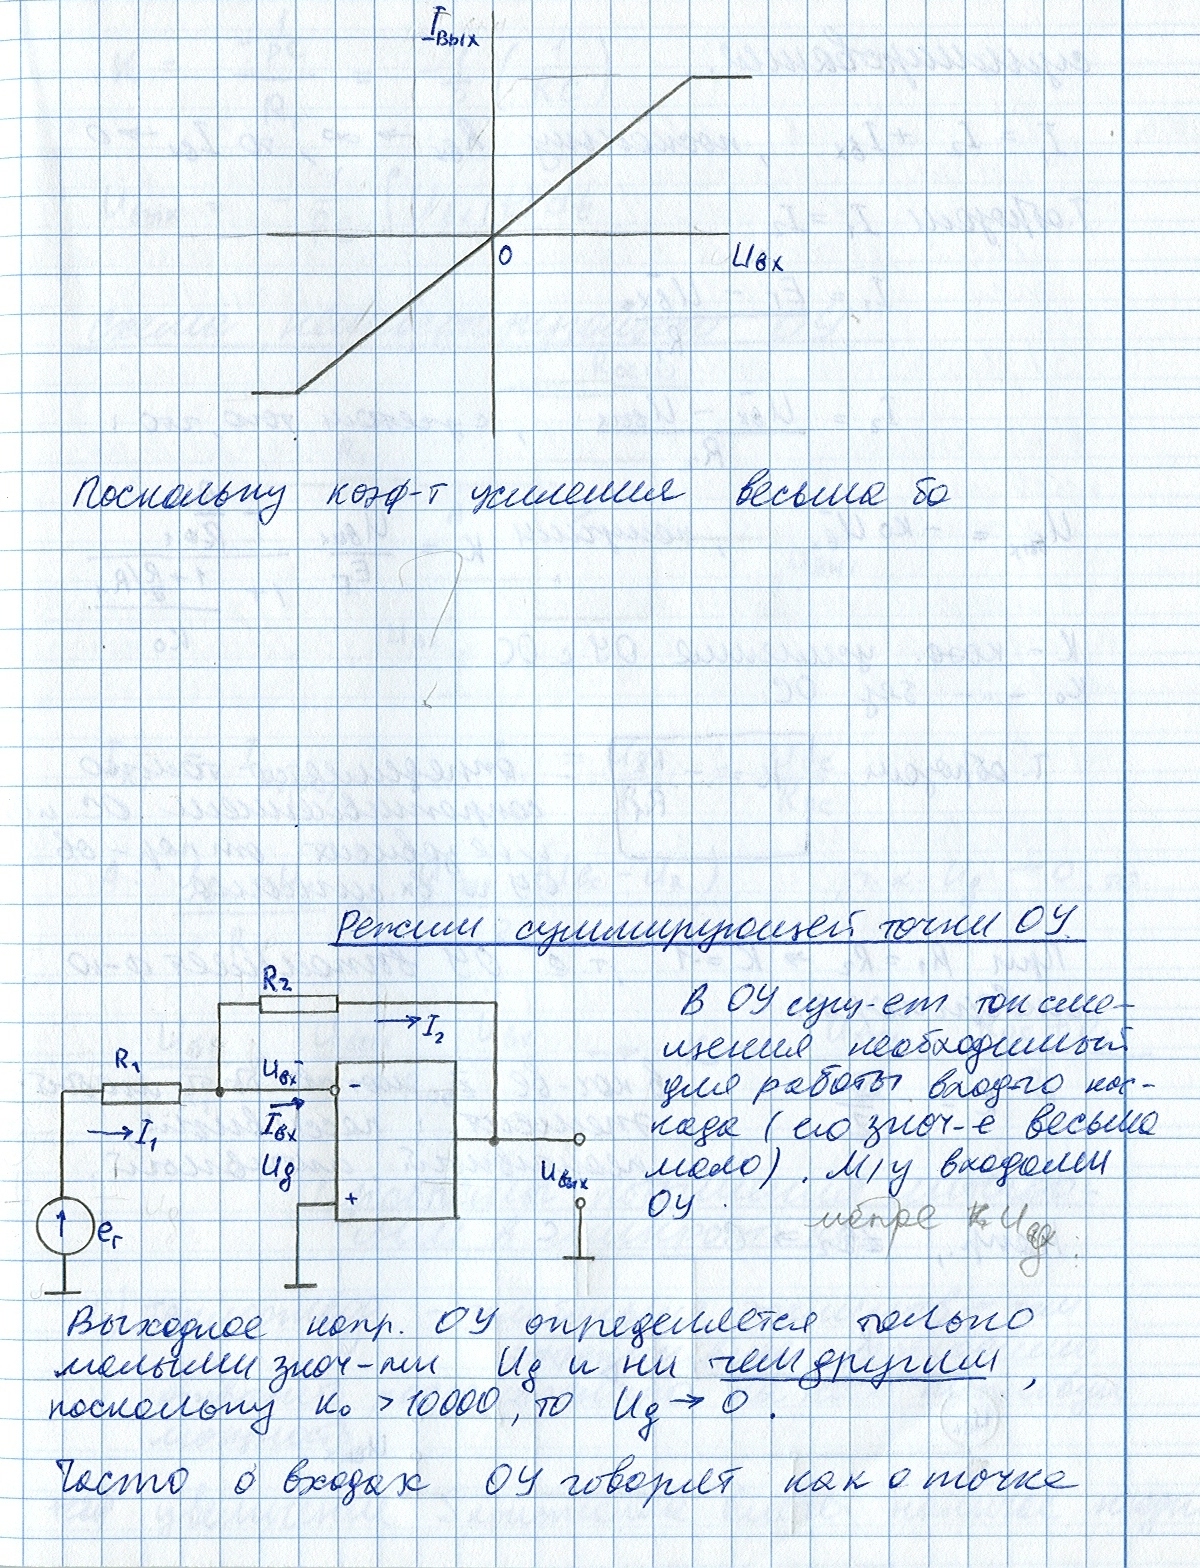 Iвых
0
Uвх
Поскольку коэф-т усиления весьма бо
Режим суммирующей точки ОУ
R2
I2
R1
Uвх⁻
-
Iвх
I1
Uд
Uвых
+
eг
В ОУ сущ-ет ток сме-
щения необходимый
для работы входго кас-
када (его знач-е весьма
мало). М/у входами
ОУ.
Uдх
Выходное напр. ОУ определяется только
малыми знач-ми Uд и ни чем другим,
поскольку K₀ > 10000, то Uд → 0.
Часто о входах ОУ говорят как о точке